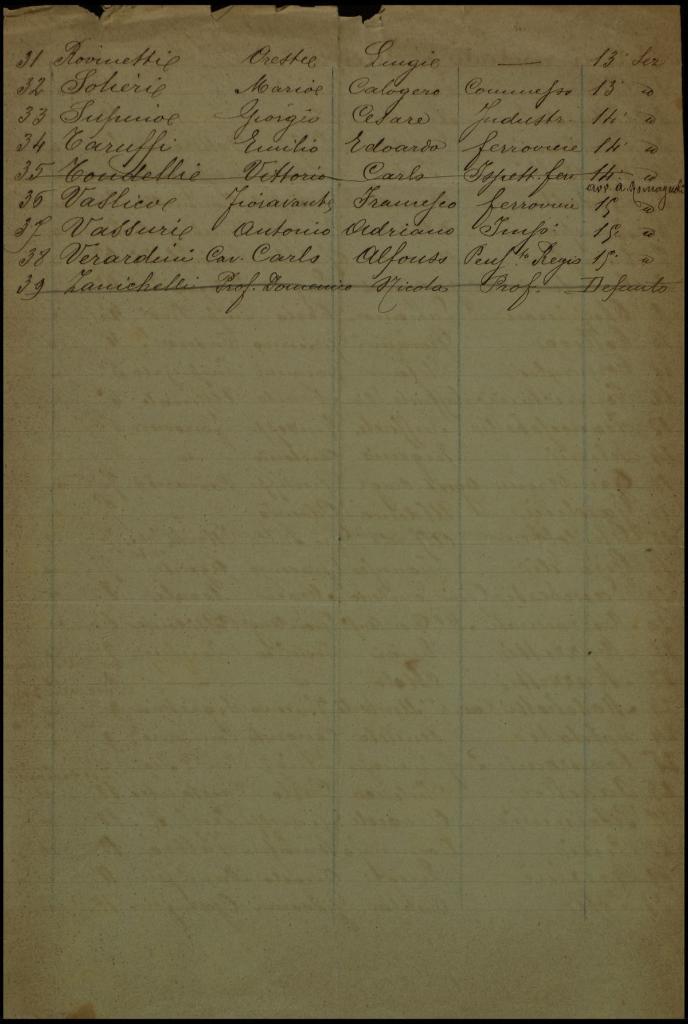 31 Rovinetti Oreste Luigi — 13ª Ser
32 Soheri Mario Calogero Commesso 13ª "
33 Supino Giorgio Cesare Industr. 14ª "
34 Taruffi Emilio Edoardo ferroviere 14ª "
35 Tondelli Vittorio Carlo Ispett. ferr 14ª "
36 Vaslico Fioravante Francesco ferroviere 15ª "
37 Vassuri Antonio Adriano Impº 15ª "
38 Verardini Cav. Carlo Alfonso Penst.to Regio 15ª "
39 Zanichelli Prof. Domenico Nicola Prof. Defunto